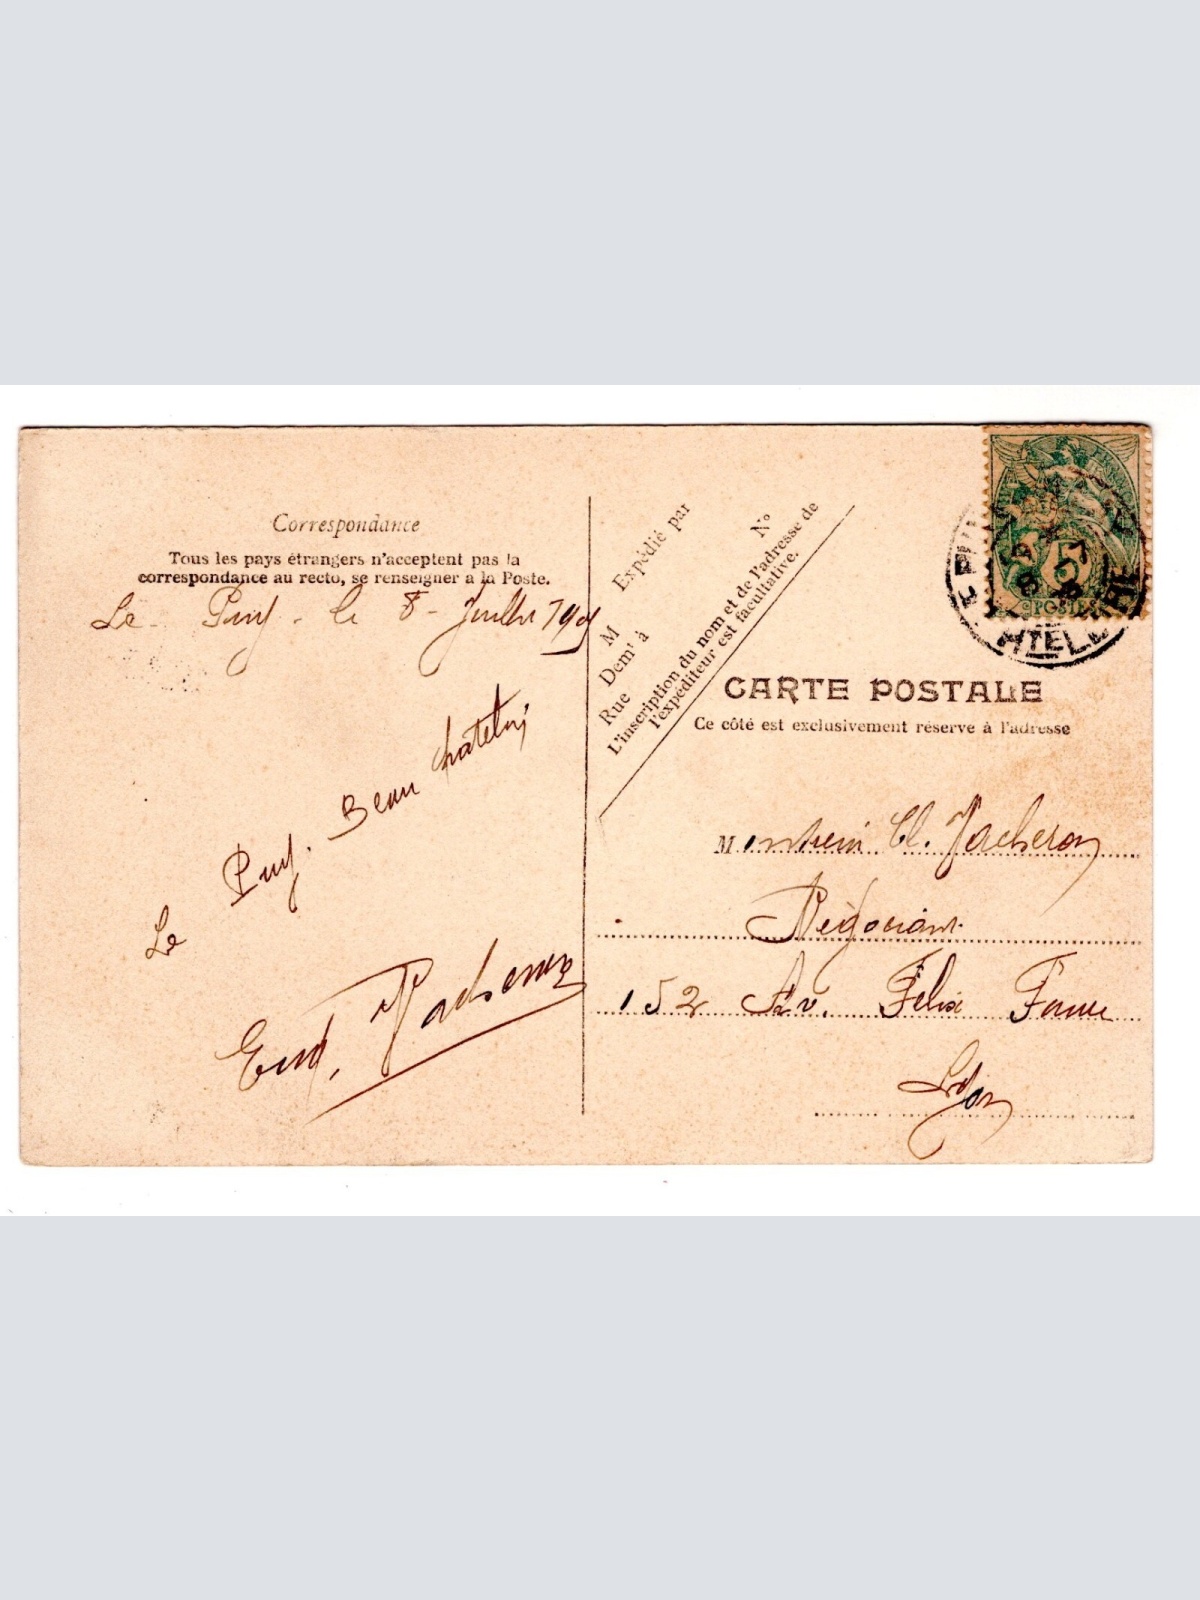 Correspondance
Tous les pays étrangers n'acceptent pas la
correspondance au recto, se renseigner à la Poste.
Le Puy. le 8 - Juillet 190
Le Puy. Beau
Eug. Vacheron
Expédié par
N°
M
Dem^t à
Rue
L'inscription du nom et de l'adresse de
l'expéditeur est facultative.
POSTES
5
CARTE POSTALE
Ce côté est exclusivement réservé à l'adresse
Monsieur Cl. Vacheron
Négociant
152 Av. Félix Faure
Lyon